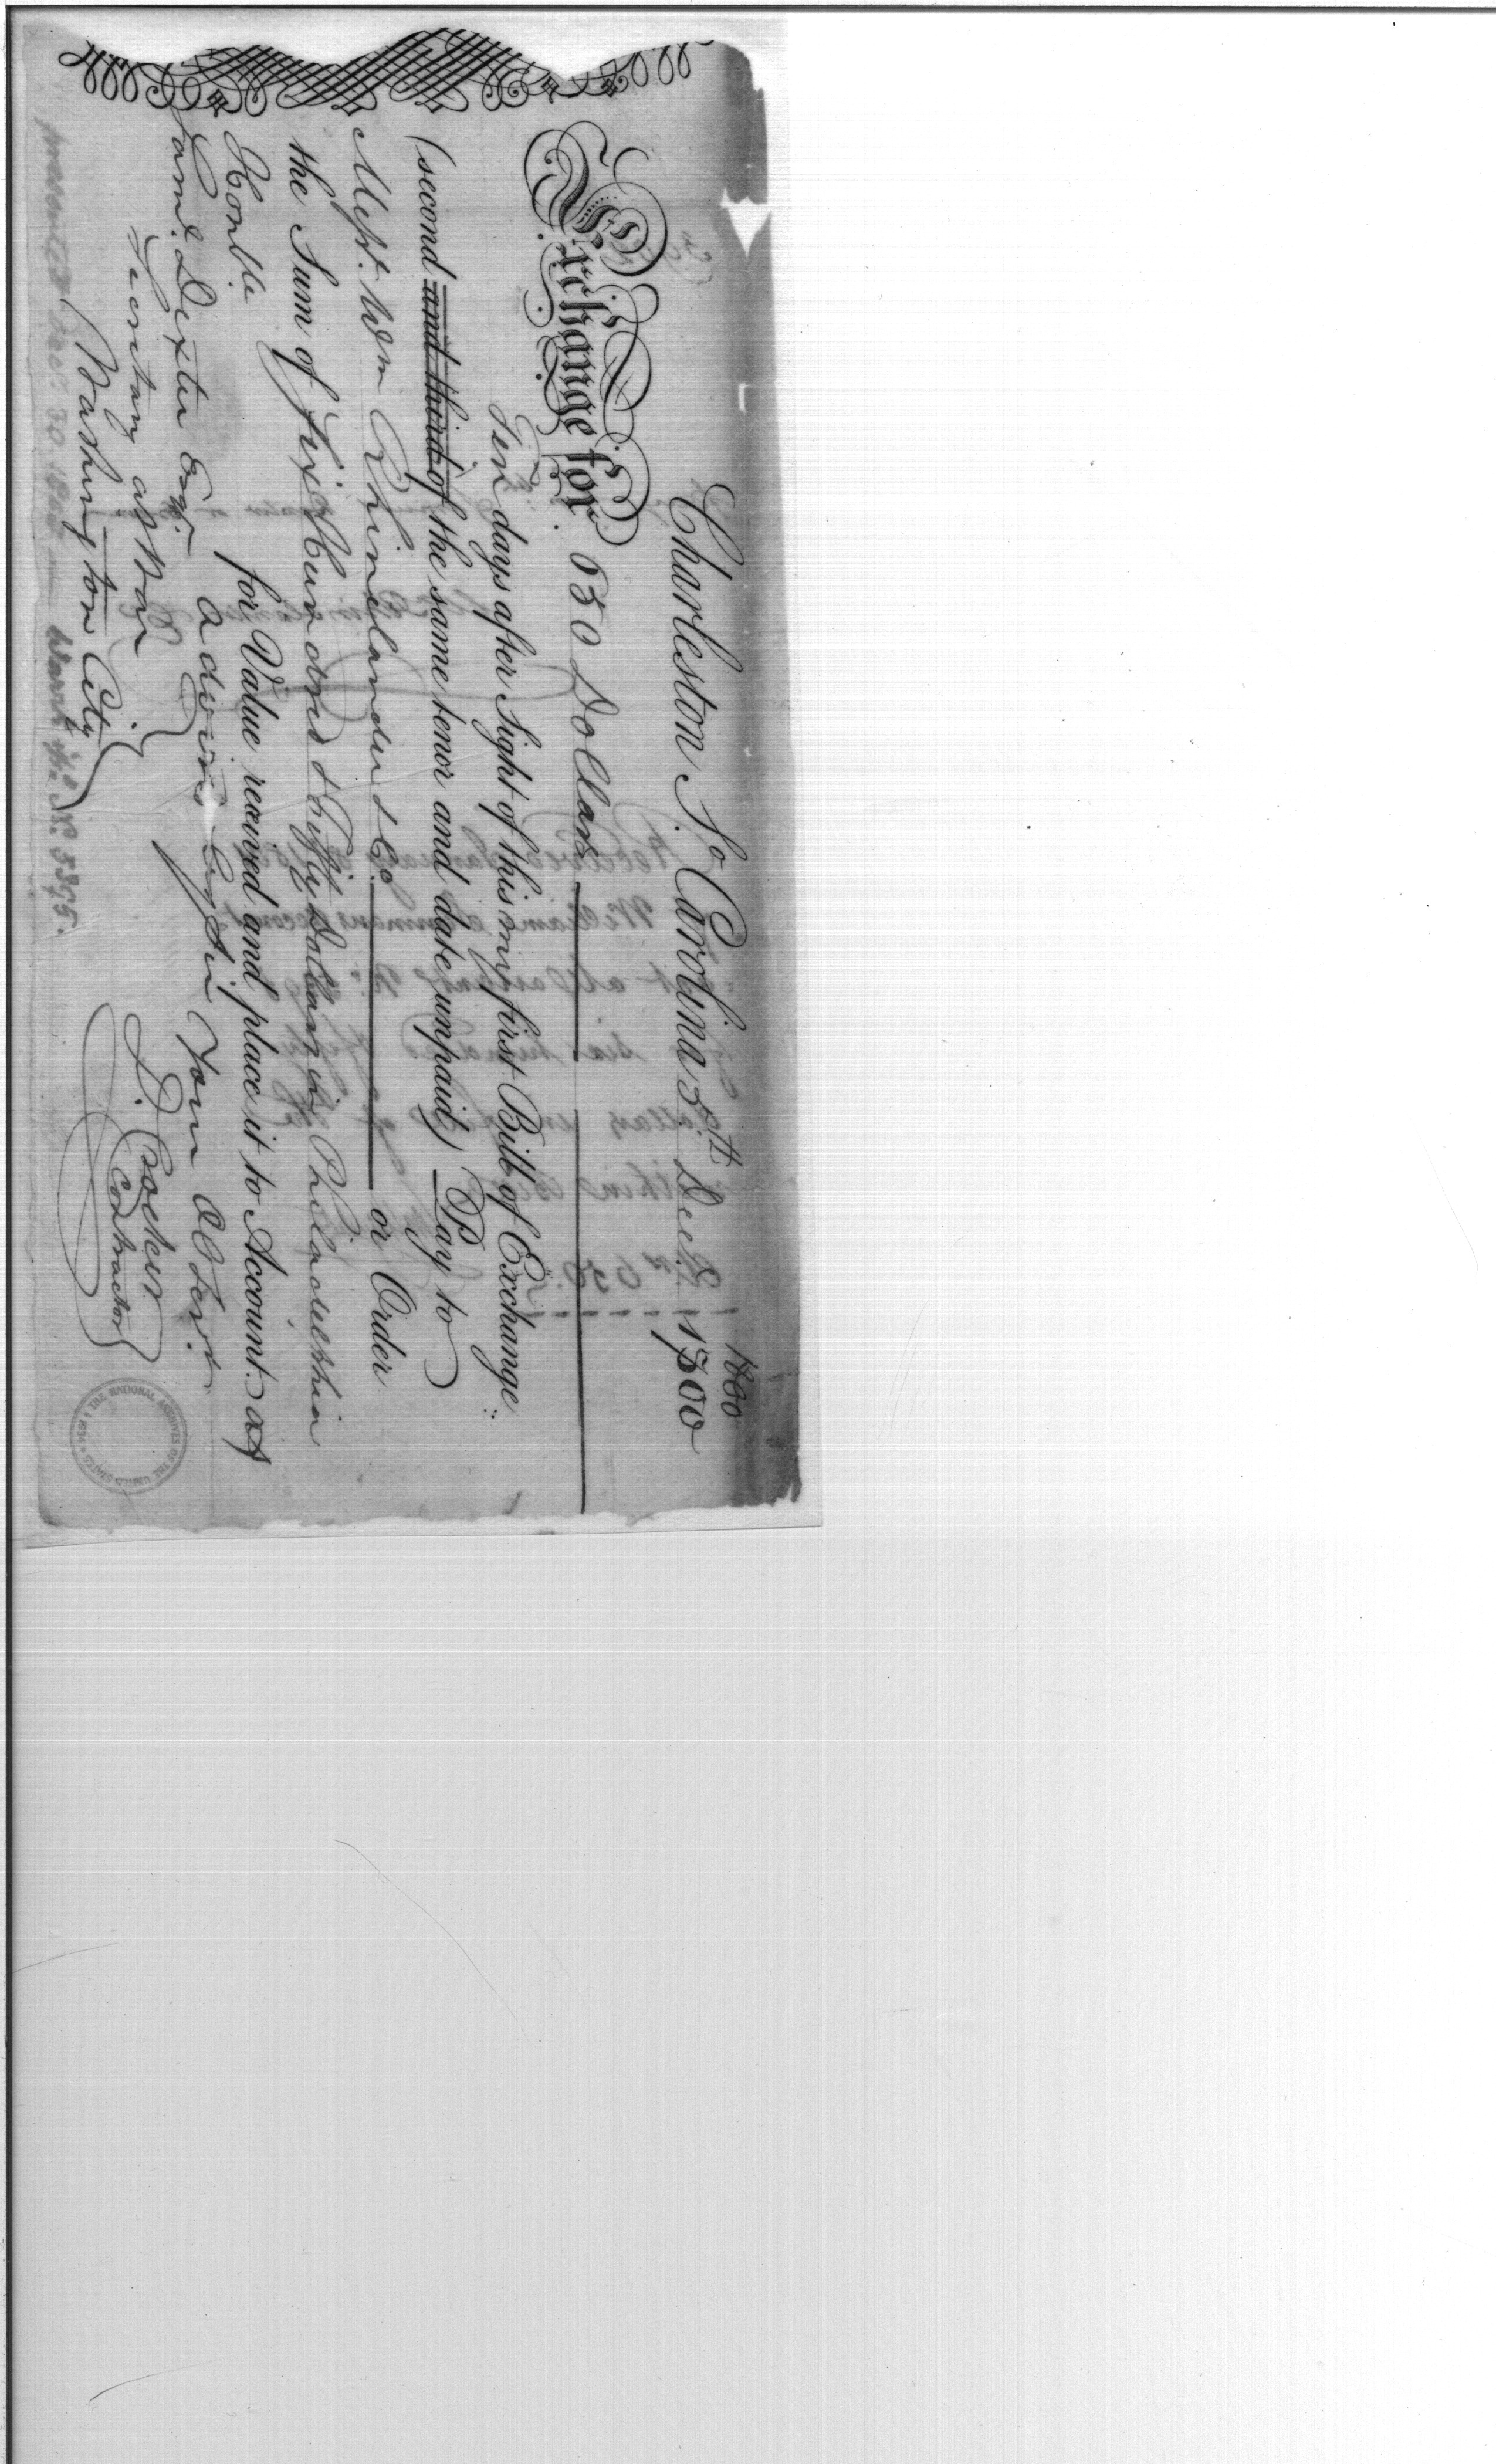 Charleston So. Carolina 5th Decr. 1800
1800
Exchange for 650 Dollars
Ten days after Sight of this my first Bill of Exchange
(second and third of the same tenor and date unpaid) Pay to
Messrs. Wm Rhinelander & Co. or Order
the Sum of Six Hundred & Fifty Dollars in Philadelphia
for Value received and place it to Account as
advised by Sir Your Ob Servt.
Honble
Saml. Dexter Esqr.
Secretary at War
Washington City
Contractor
presented Decr. 30 1800 Warrt. No. 5395.
THE NATIONAL ARCHIVES OF THE UNITED STATES